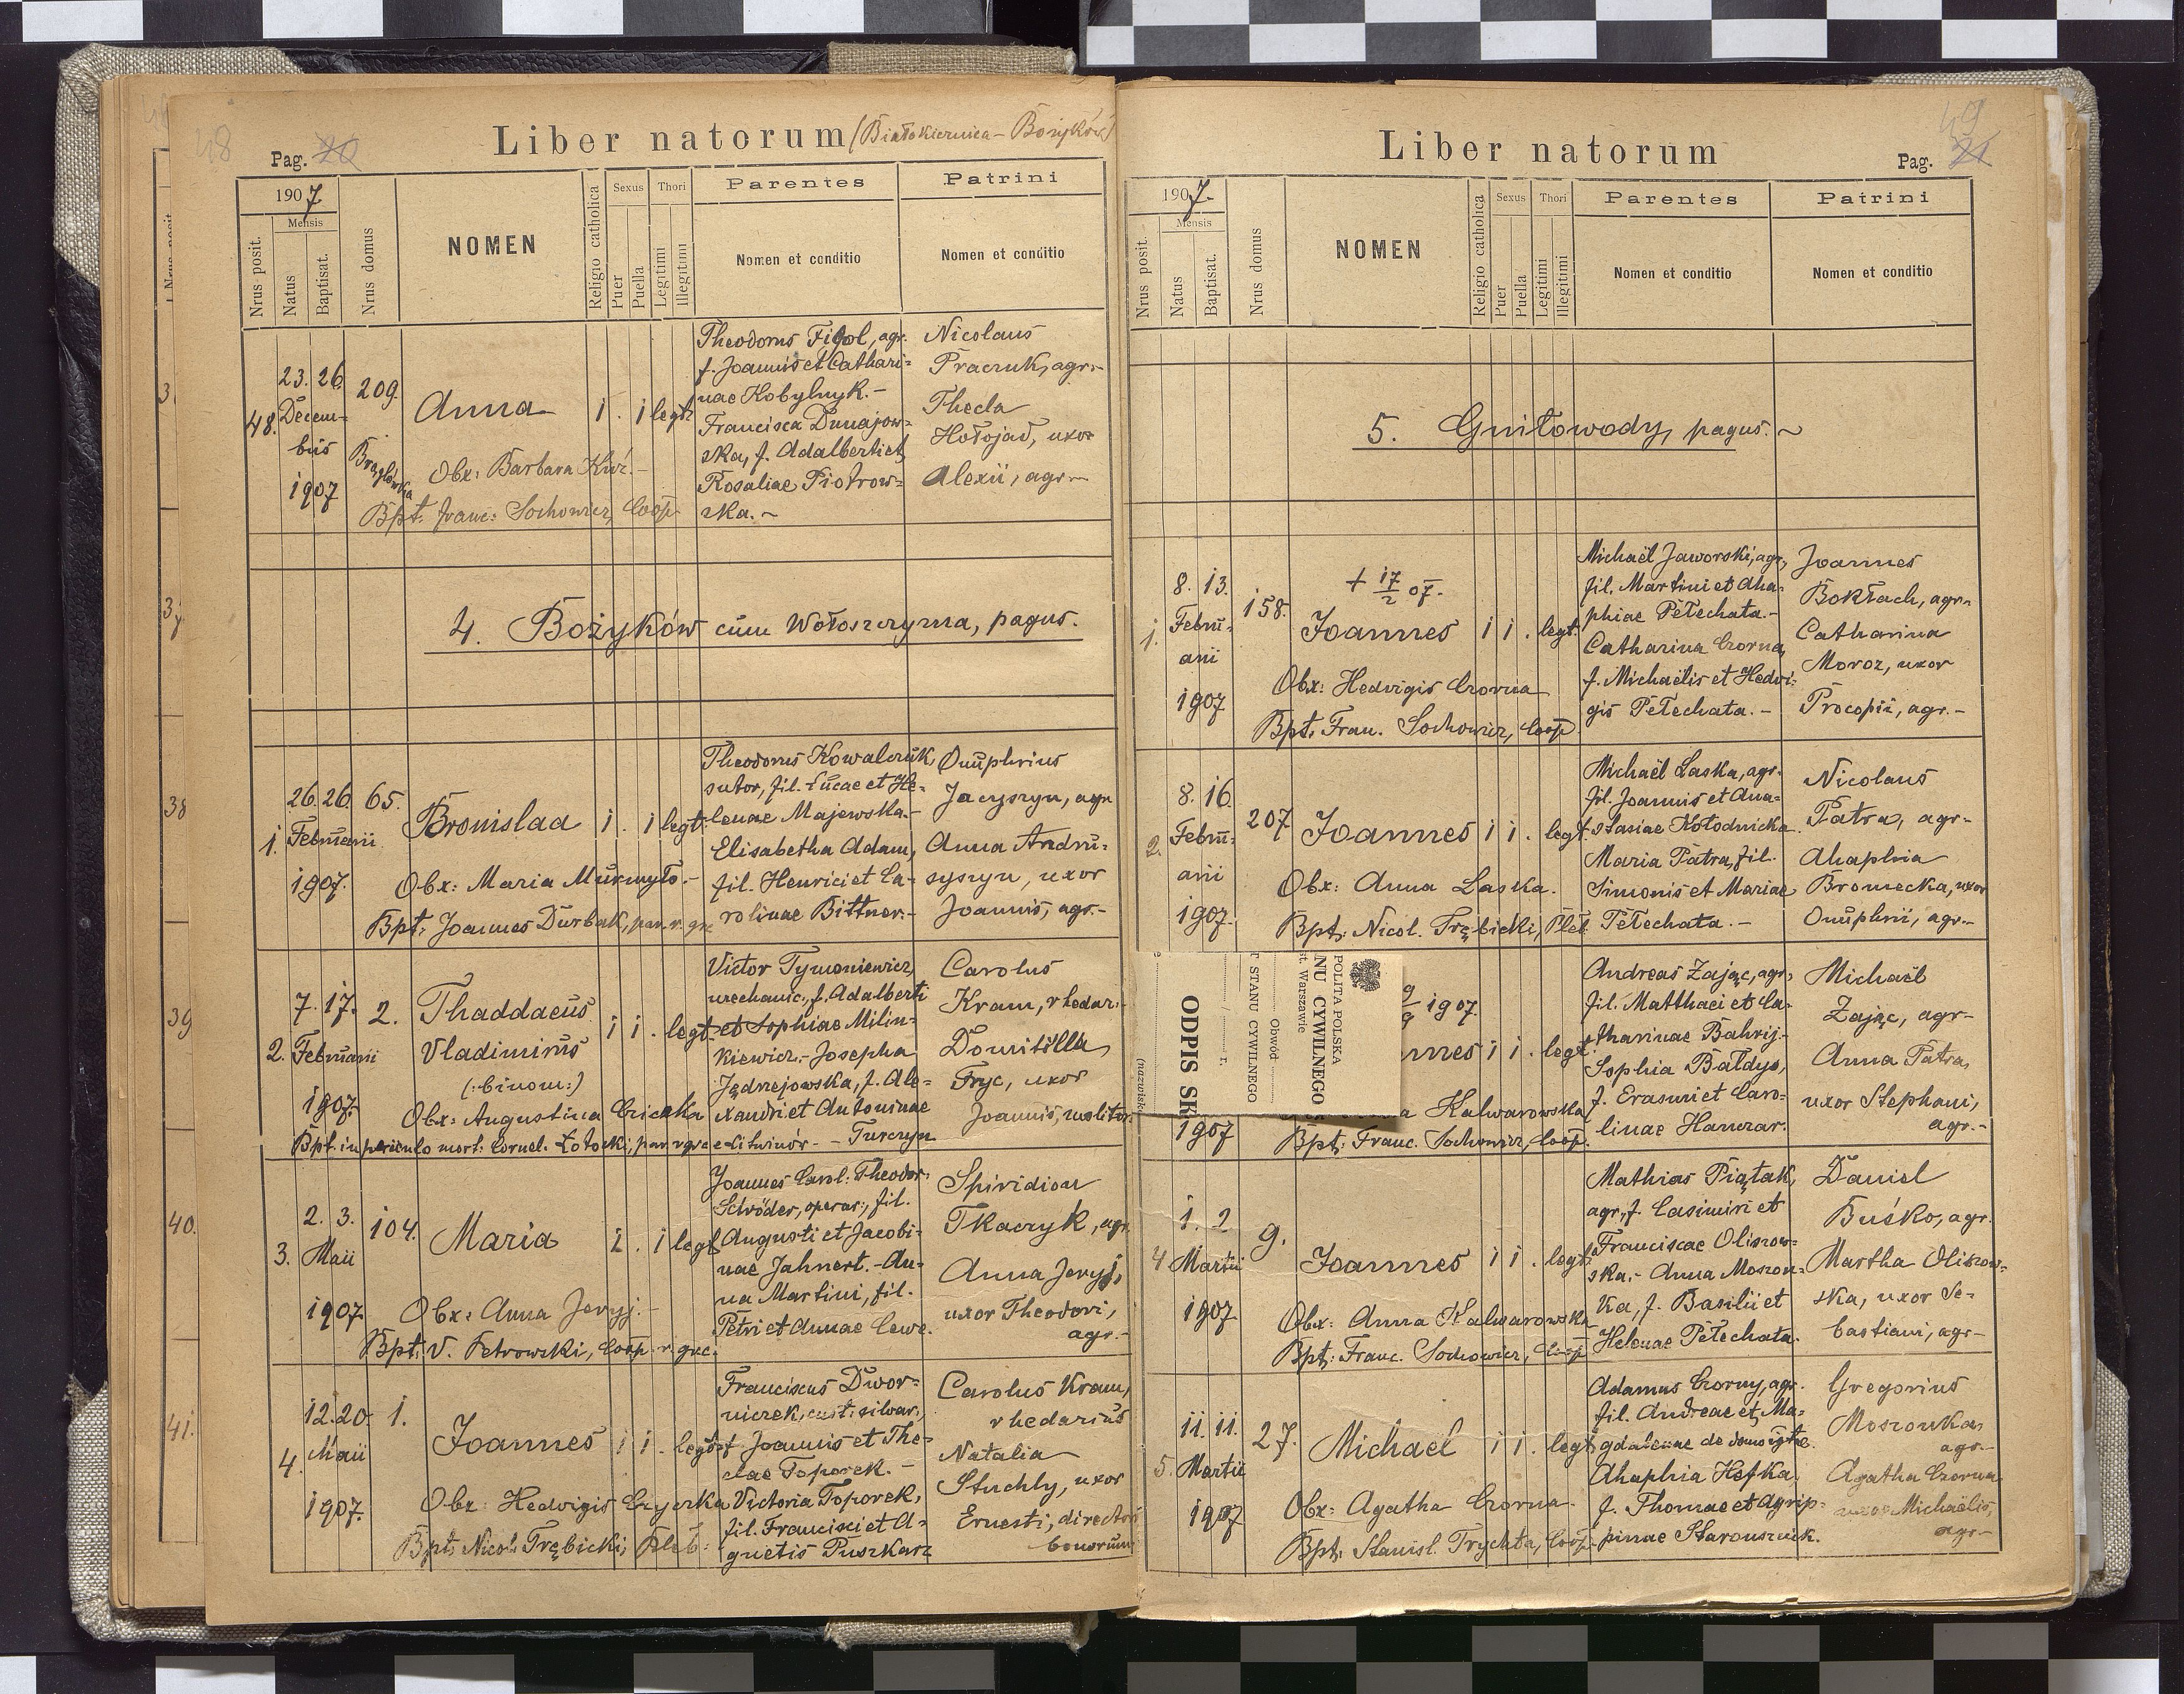 48
Pag. 20
Liber natorum (Białokiernica - Bożyków)
1907
Mensis
Nrus posit.
Natus
Baptisat.
Nrus domus
NOMEN
Religio catholica
Sexus
Puer
Puella
Thori
Legitimi
Illegitimi
Parentes
Nomen et conditio
Patrini
Nomen et conditio
48.
23. 26
Decem-
bris
1907
209.
Anna
1 . 1 legt.
Obx: Barbara Kuź.-
Bpt: Franc: Sochowicz, Coop.
Theodorus Figol, agr.
f. Joannis et Cathari=
nae Kobylnyk.-
Francisca Dunajow=
ska, f. Adalberti et
Rosaliae Piotrow=
ska.-
Nicolaus
Praczuk, agr.-
Thecla
Hołojad, uxor
Alexii, agr.-
4. Bożyków cum Wołoszczyzna, pagus.
1.
26. 26.
Februarii
1907.
65.
Bronislaa
1 . 1 legt.
Obx: Maria Murmyło.-
Bpt: Joannes Durbak, par. r. gr.
Theodorus Kowalczuk,
sutor, fil. Lucae et He=
lenae Majewska.-
Elisabetha Adam,
fil. Henrici et Ca=
rolinae Bittner.-
Onuphrius
Jacyszyn, agr.
Anna Andru=
syszyn, uxor
Joannis, agr.-
2.
7. 17.
Februarii
1907.
2.
Thaddaeus
Vladimirus
(:binom:)
1 1 . legt.
Obx: Augustina
Bpt. in periculo mort. Cornel. Łotocki, par. r. grc. e Litwinów -
Victor Tymoniewicz,
mechanic., f. Adalberti
et Sophiae Milin=
kiewicz.- Josepha
Jędrzejowska, f. Ale=
xandri et Antoninae
Turczyn
Carolus
Kram, rhedar.-
Domitilla
Fryc, uxor
Joannis, molitor.
3.
2. 3.
Maii
1907
104.
Maria
1 . 1 legt.
Obx: Anna Jeryj.-
Bpt: V. Petrowski, Coop. r. grc.
Joannes Carol. Theodor.
Schröder, operar., fil.
Augusti et Jacobi=
nae Jahnert.- An=
na Martini, fil.
Petri et Annae Lewe.
Spiridion
Tkaczyk, agr.
Anna Jeryj,
uxor Theodori,
agr.-
4.
12. 20.
Maii
1907.
1.
Joannes
1 1 . legt.
Obx: Hedvigis
Bpt: Nicol. Trębicki, Pleb:
Franciscus Dwor=
niczek, cust. silvar.,
f. Joannis et The=
clae Toporek.-
Victoria Toporek,
fil. Francisci et A=
gnetis Puszkarz
Carolus Kram,
rhedarius
Natalia
Stuchly, uxor
Ernesti, directoris
bonorum
49
Liber natorum
Pag. 21
1907.
Mensis
Nrus posit.
Natus
Baptisat.
Nrus domus
NOMEN
Religio catholica
Sexus
Puer
Puella
Thori
Legitimi
Illegitimi
Parentes
Nomen et conditio
Patrini
Nomen et conditio
5. Gniłowody, pagus.-
1.
8. 13.
Febru=
arii
1907
158.
+ 17/2 07.
Joannes
1 1 . legt.
Obx: Hedvigis Czorna
Bpt: Fran. Sochowicz, Coop.
Michaël Jaworski, agr.,
fil. Martini et Aha=
phiae Pełechata.-
Catharina Czorna,
f. Michaëlis et Hedvi=
gis Pełechata.-
Joannes
Bokłach, agr.
Catharina
Moroz, uxor
Procopii, agr.-
2.
8. 16.
Febru=
arii
1907.
207
Joannes
1 1 . legt.
Obx: Anna Laska.
Bpt: Nicol. Trębicki, Pleb.
Michaël Laska, agr.
fil. Joannis et Ana=
stasiae Kołodnicka.
Maria Patra, fil.
Simonis et Mariae
Pełechata.-
Nicolaus
Patra, agr.-
Ahaphia
Broniecka, uxor
Onuphrii, agr.-
POLITA POLSKA
NU CYWILNEGO
st. Warszawie
Obwód
T STANU CYWILNEGO
/ r.
ODPIS SK
(nazwisko
9 1907.
nnes
1 1 . legt.
1907
a Kalwarowska
Bpt: Franc. Sochowicz, Coop.
Andreas Zając, agr.,
fil. Matthaei et Ca=
tharinae Bahrij.-
Sophia Bałdys,
f. Erasmi et Caro=
linae Hanczar.
Michaël
Zając, agr.-
Anna Patra,
uxor Stephani,
agr.-
4
1. 2
Martii
1907
9.
Joannes
1 1 . legt.
Obx: Anna Kalwarowska
Bpt: Franc. Sochowicz, Coop.
Mathias Piątak,
agr., f. Casimiri et
Franciscae Oliszow=
ska.- Anna Moszon=
ka, f. Basilii et
Helenae Pełechata.
Daniel
Buśko, agr.
Martha Oliszow=
ska, uxor Se=
bastiani, agr.-
5.
11. 11.
Martii
1907
27.
Michael
1 1 . legt.
Obx: Agatha Czorna
Bpt: Stanisl. Trychta, Coop.
Adamus Czorny, agr.
fil. Andreae et Ma=
gdalenae de domo
Ahaphia Hefka,
f. Thomae et Agrip=
pinae Starouszczuk.
Gregorius
Moszonka,
agr.-
Agatha Czorna
uxor Michaëlis,
agr.-